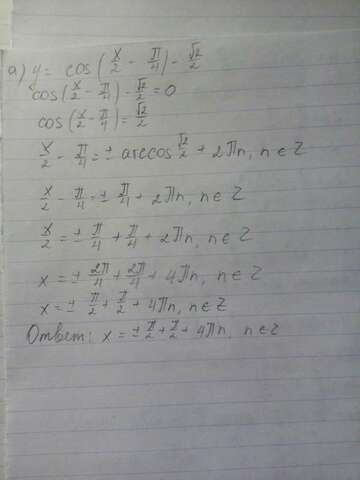 а) y = cos(x/2 - π/4) - √2/2
cos(x/2 - π/4) - √2/2 = 0
cos(x/2 - π/4) = √2/2
x/2 - π/4 = ± arccos √2/2 + 2πn, n ∈ Z
x/2 - π/4 = ± π/4 + 2πn, n ∈ Z
x/2 = ± π/4 + π/4 + 2πn, n ∈ Z
x = ± 2π/4 + 2π/4 + 4πn, n ∈ Z
x = ± π/2 + π/2 + 4πn, n ∈ Z
Ответ: x = ± π/2 + π/2 + 4πn, n ∈ Z